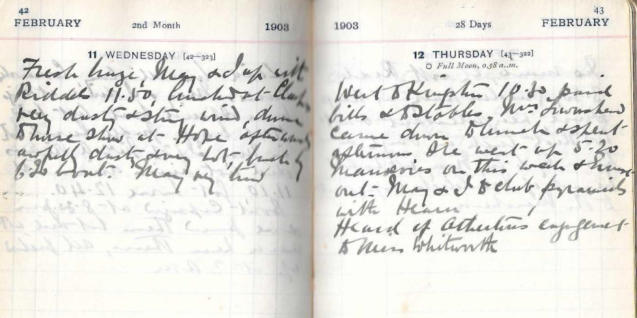 42
FEBRUARY 2nd Month 1903
11 WEDNESDAY [42-323]
Fresh huge, May & I up with
Riddle 11.50, lunched at Club
very dusty & strong wind,
to horse show at Hope afterwards
awfully dusty & very hot, back by
6.30 boat. May very tired
43
1903 28 Days FEBRUARY
12 THURSDAY [43-322]
Full Moon, 0.58 a.m.
Went to Kingston 10.30, paid
bills & to stables, Mrs
came down to lunch & spent
afternoon She went up 5.20
Manoevres on this week &
out. May & I to club pyramids
with Hearn
Heard of engagement
to Miss Whitworth